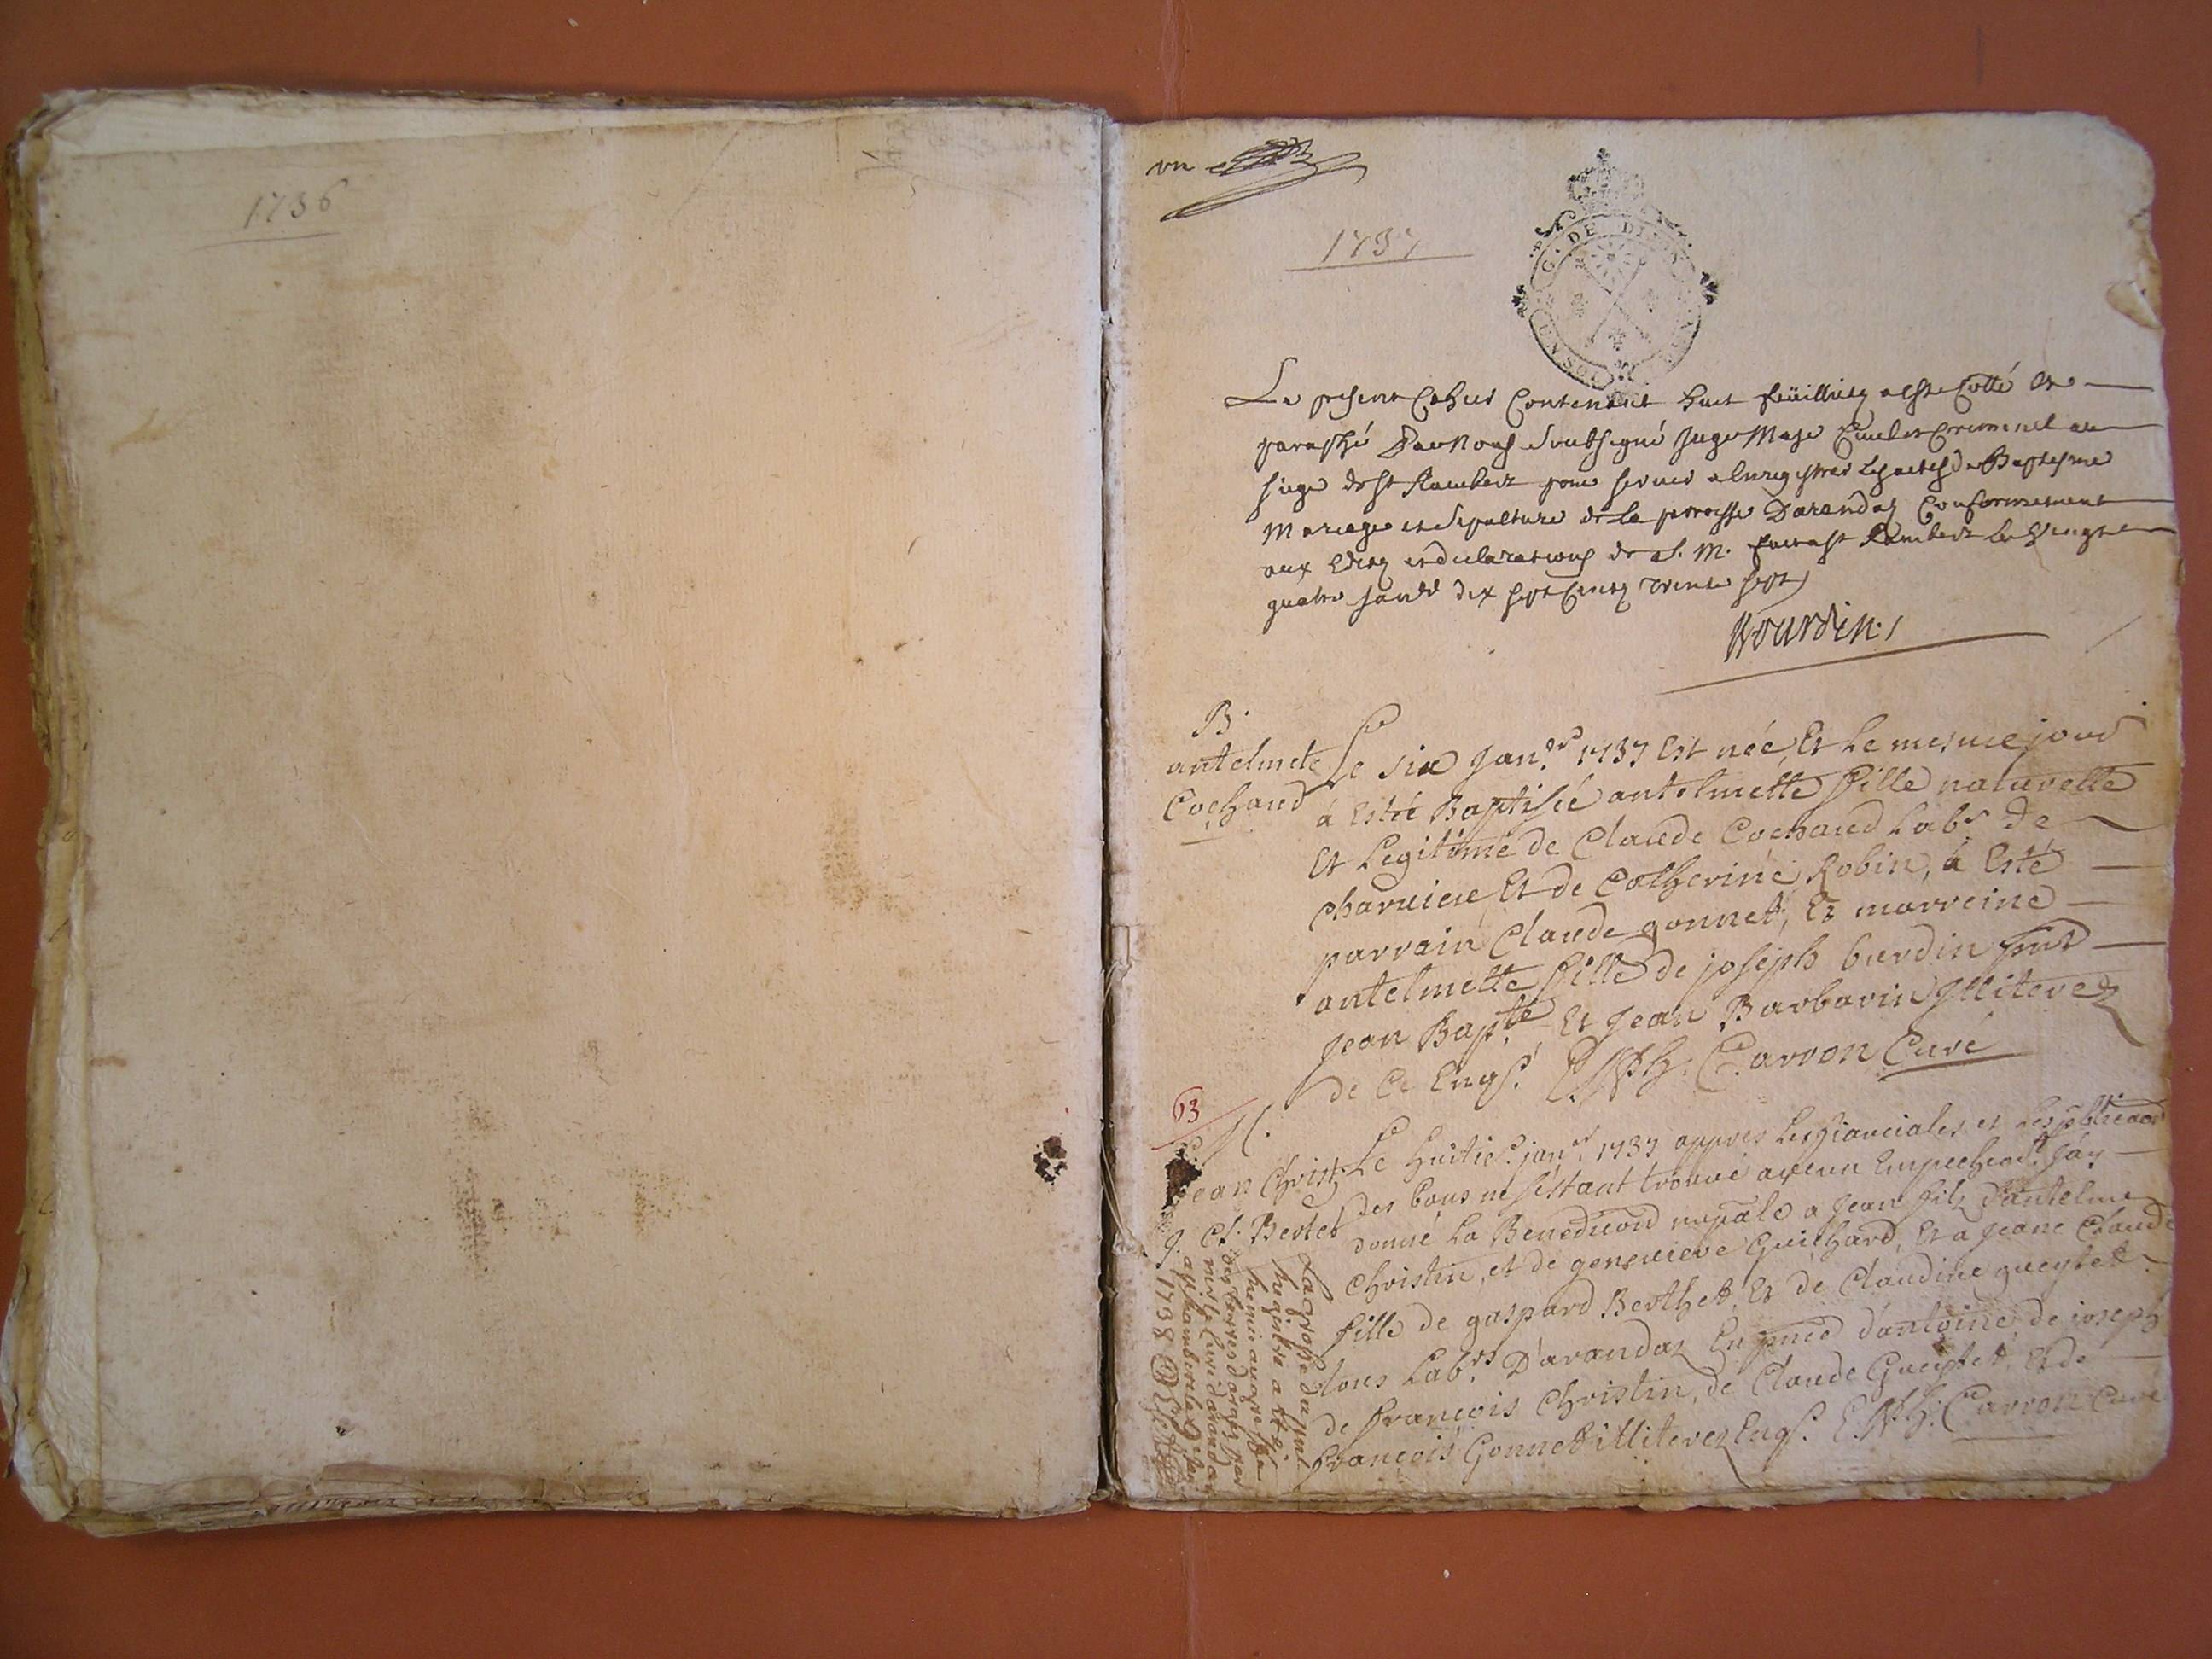 1736
un
1737
G. DE DIJON
Le present Cahier Contenant huit feüilliets a este Cotté et
paraphé Par Nous Soubsigné Juge Maje Civil et Criminel au
siege de St Rambert pour servir a Enregistrer les actes de Baptesme
Mariage et Sepulture de la parroisse Darandas Conformement
aux Edits et declarations de S. M. fait a St Rambert le Vingt
quatre janvr dix sept Cents trente sept
B.
antelmete
Cochaud
Le six Janer 1737 Est née, Et Le mesme jour
á Esté Baptisée antelmette fille naturelle
Et Legitime de Claude Cochaud Labr de
charviere Et de Catherine Robin, a Esté
parrain Claude gonnet, Et marreine
antelmette fille de joseph burdin pnts
Jean Bapte Et Jean Barbarin Illiterez
de Ce Enqs. Carron Curé
13
M.
Jean Christ.
J. Cl. Bertet
Le huitie janr 1737 appres Les fianciales et Les publicaons
des bans ne s'estant trouvé aucun Empechemt. J'ay
donné La Benediction nuptale a Jean fils d'antelme
Christin, et de genevieve Guichard, Et a Jeane Claude
fille de gaspard Berthet, Et de Claudine gueytet
tous Labrs D'arandas En pnce d'antoine, de joseph
de françois Christin, de Claude Gueytet Et de
françois Gonnet illiterez Enqs. Carron Curé
La grosse du pnt
registre a été
remis au greffe
par
mre le Curé d'arandas
1738